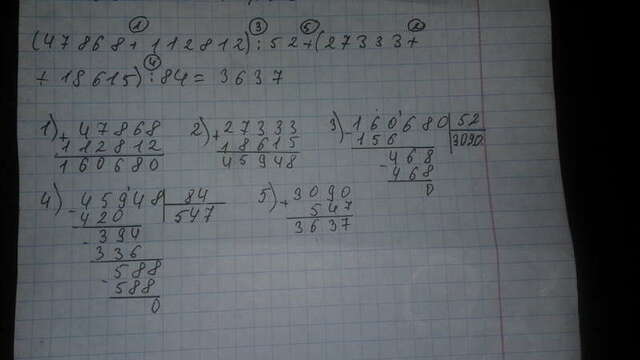 ① ③ ⑤ ②
(47868+112812):52+(27333+
④
+18615):84=3637
1) + 47868
112812
160680
2) + 27333
18615
45948
3) - 160'680 | 52
156 3090
- 468
468
0
4) - 459'48 | 84
420 547
- 394
336
- 588
588
0
5) + 3090
547
3637